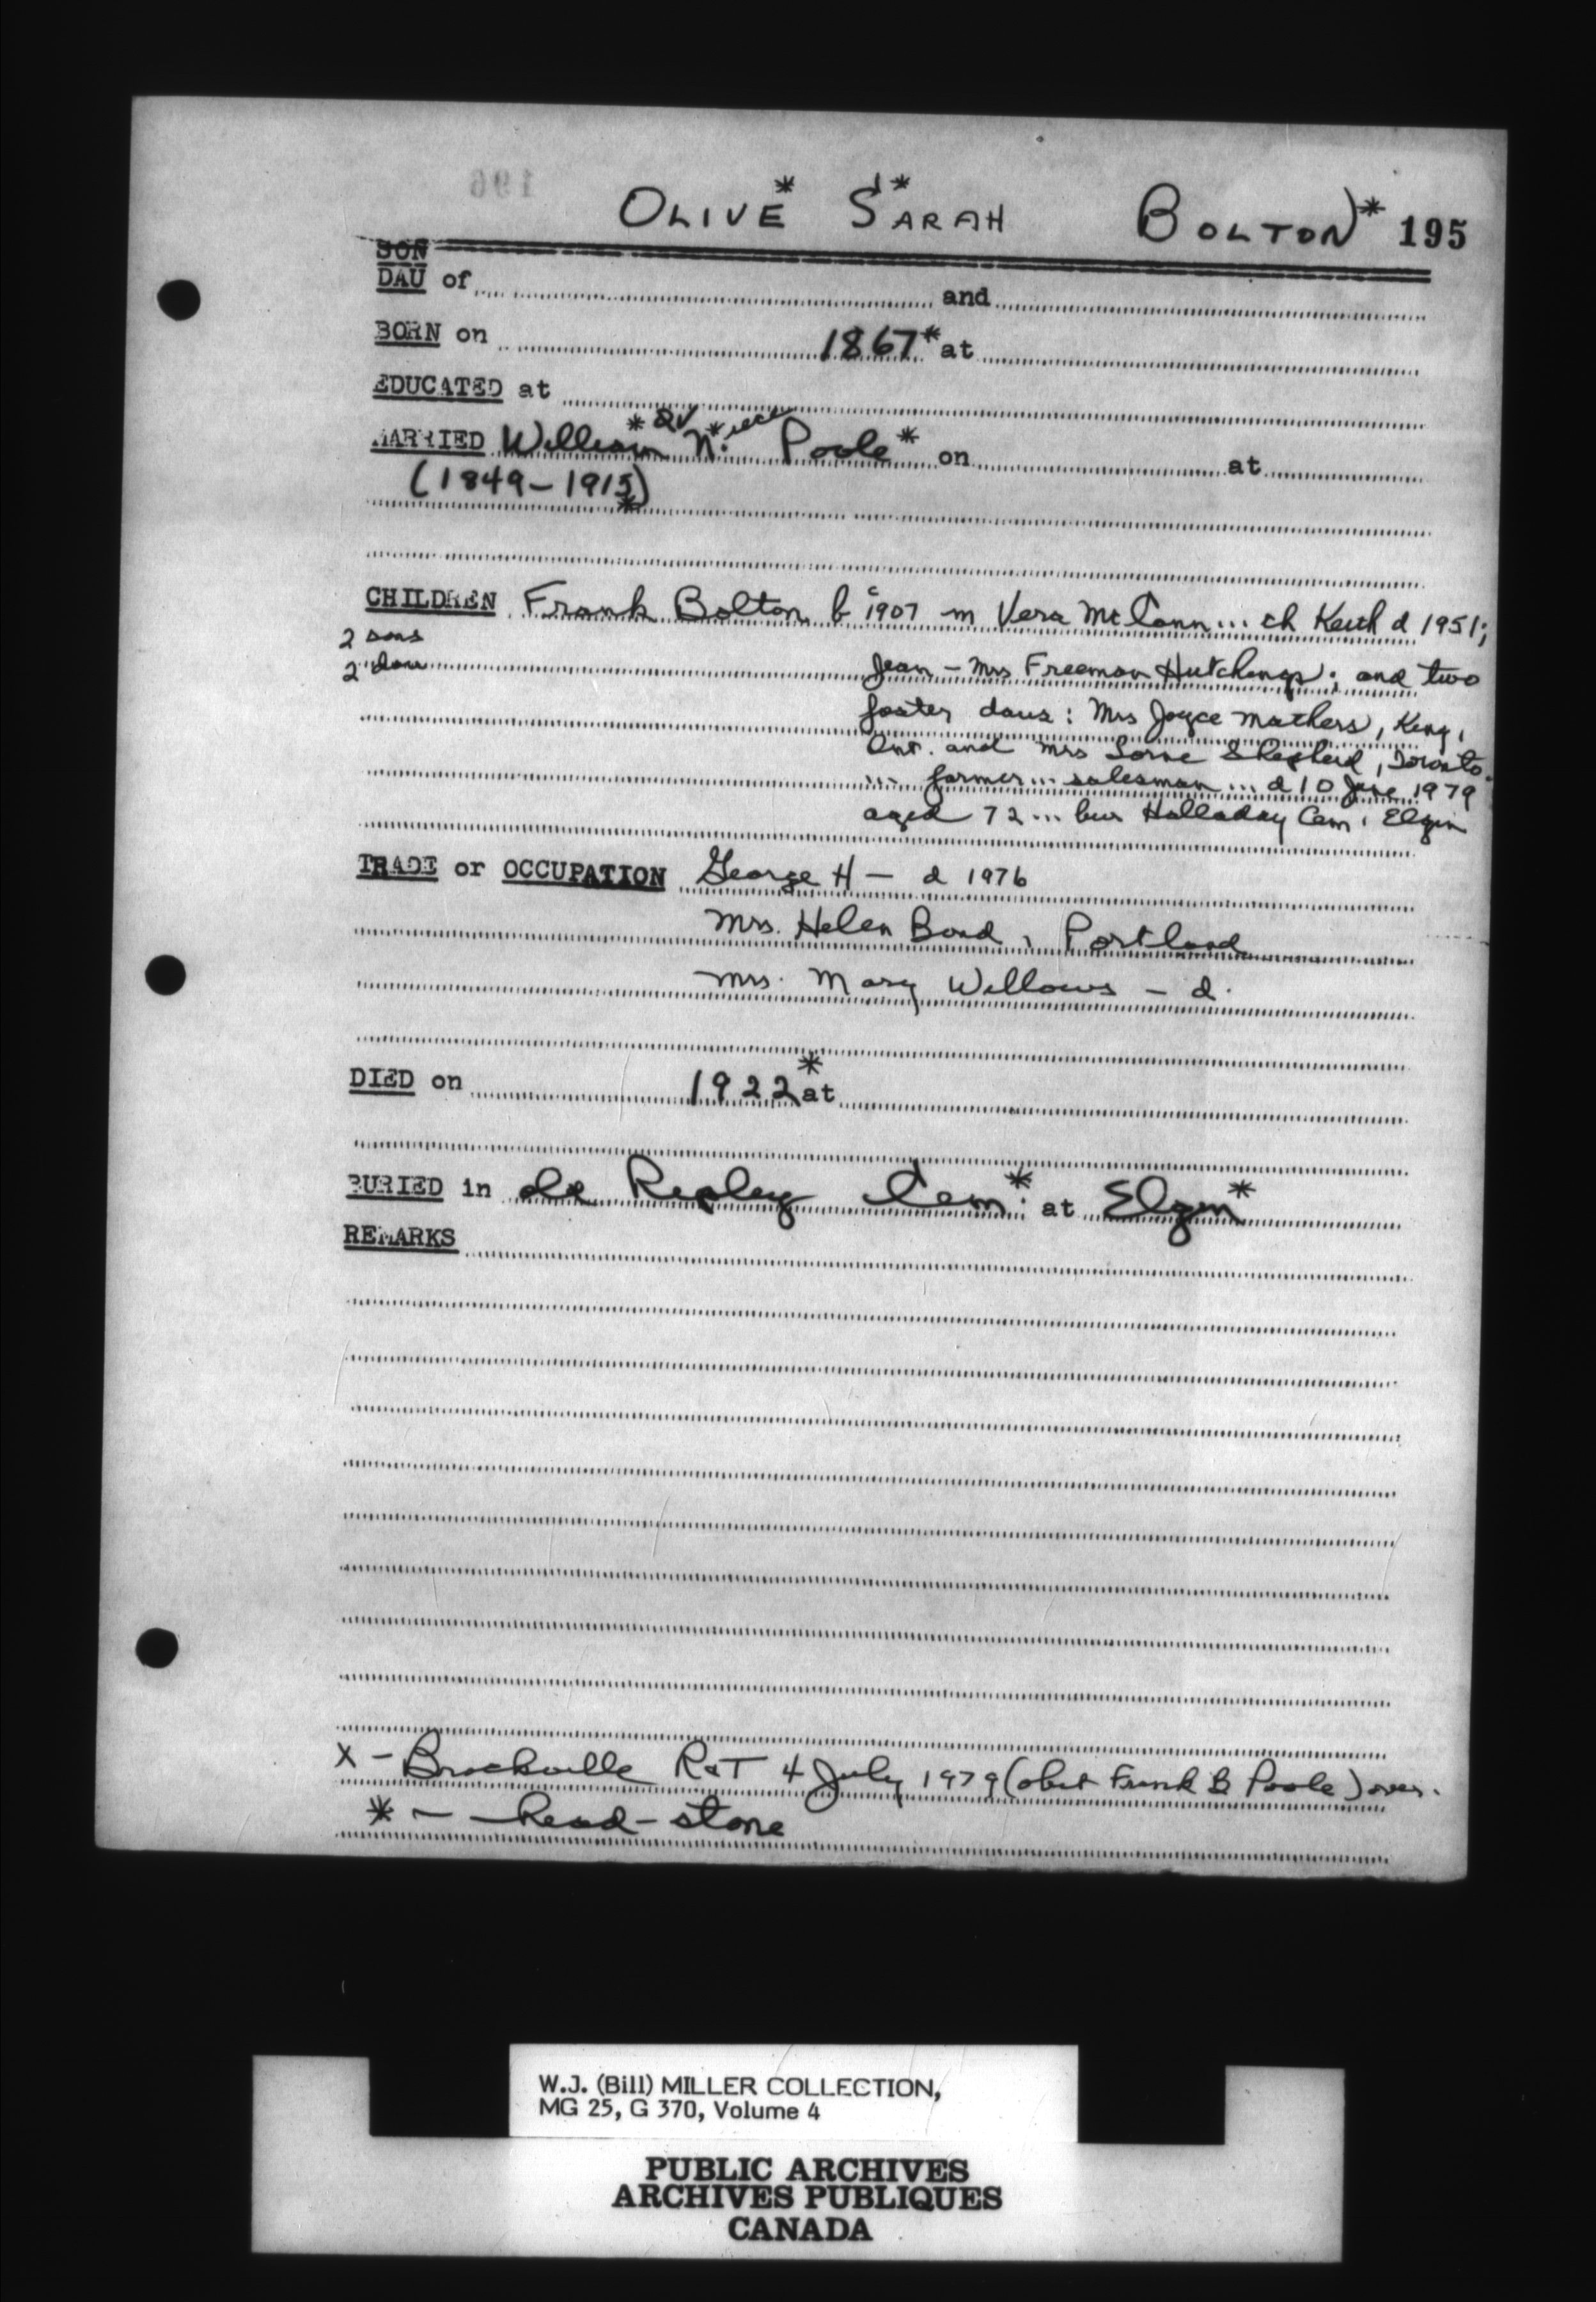 196
OLIVE* SARAH* BOLTON* 195
SON
DAU of and
BORN on 1867* at
EDUCATED at
MARRIED William* QV N.* Poole* on at
(1849-1915)*
CHILDREN Frank Bolton b c1907 m Vera McCann... ch Keith d 1951;
2 sons
2 dau Jean - Mrs Freeman Hutchings; and two
foster daus: Mrs Joyce Mathers, King,
Ont. and Mrs Lorne Shepherd, Toronto
... farmer... salesman... d 10 June 1979
aged 72... bur Halladay Cem, Elgin
TRADE or OCCUPATION George H - d 1976
Mrs. Helen Bond, Portland
Mrs. Mary Willows - d.
DIED on 1922* at
BURIED in Ripley Cem*: at Elgin*
REMARKS
X - Brockville R&T 4 July 1979 (obit Frank B Poole) over.
* - head-stone
W.J. (Bill) MILLER COLLECTION,
MG 25, G 370, Volume 4
PUBLIC ARCHIVES
ARCHIVES PUBLIQUES
CANADA